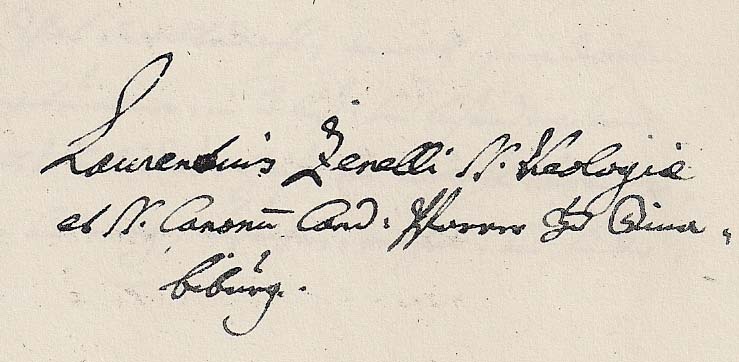 Laurentius Zenelli SS. Theologiæ
et SS. Canonū Cand: Pfarrer zu Bina„
bibŭrg.